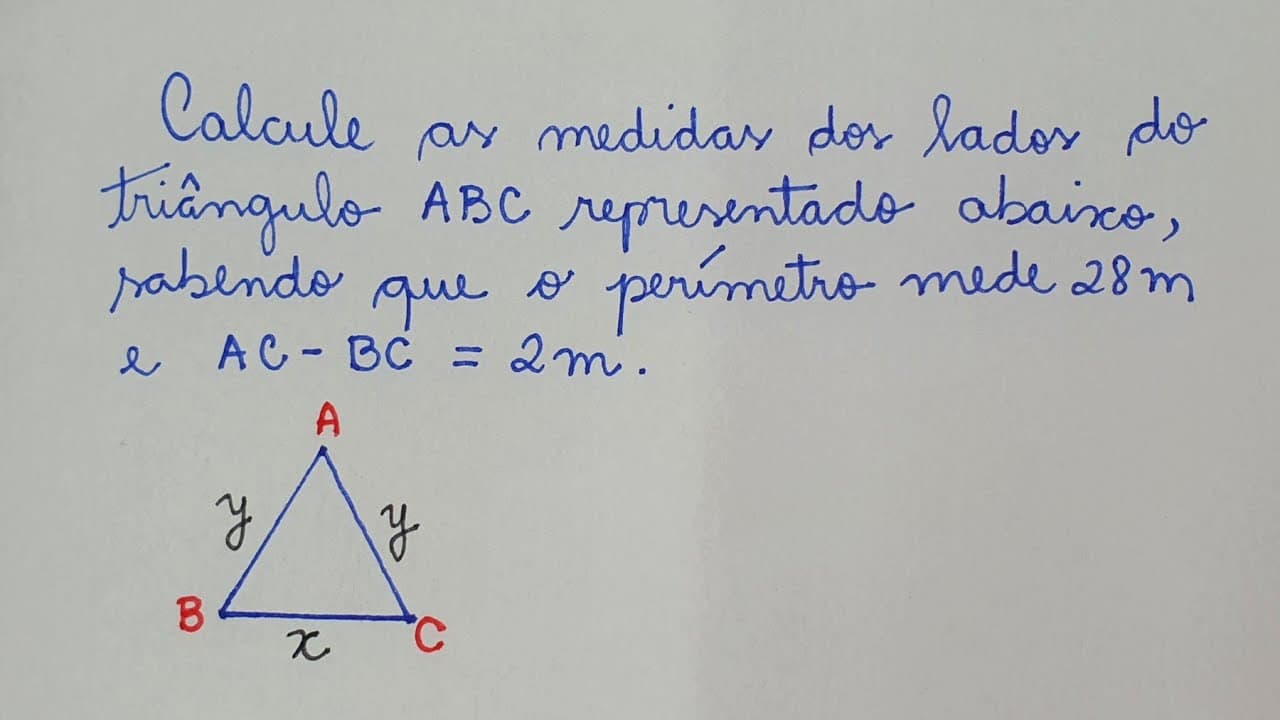 Calcule as medidas dos lados do
triângulo ABC representado abaixo,
sabendo que o perímetro mede 28m
e AC - BC = 2m.
A
y y
B C
x